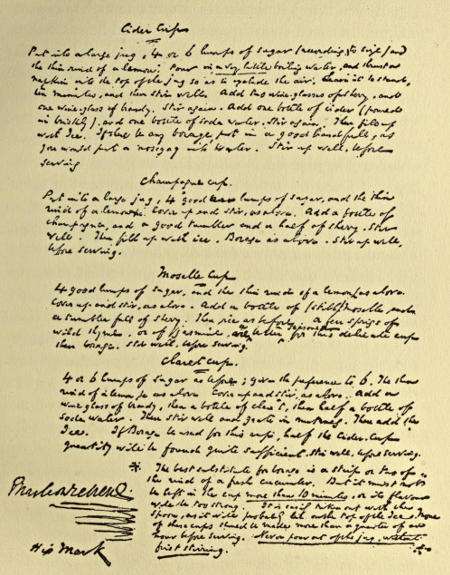 Cider Cup
Put into a large jug, 4 or 6 lumps of sugar (according to size) and
the thin rind of a lemon; Pour in a very little boiling water, and thrust a
napkin into the top of the jug so as to exclude the air. Leave it to stand,
ten minutes, and then stir well. Add two wine-glasses of sherry, and
one wine-glass of brandy. Stir again. Add one bottle of cider (poured
in briskly), and one bottle of soda water. Stir again. Then fill up
with Ice. If there be any borage, put in a good handful, as
you would put a nosegay into water. Stir up well, before
serving
Champagne cup.
Put into a large jug, 4 good lumps of sugar, and the thin
rind of a lemon. Cover up and stir, as above. Add a bottle of
champagne, and a good tumbler and a half of sherry. Stir
well. Then fill up with ice. Borage as above. Stir up well,
before serving.
Moselle Cup
4 good lumps of sugar, and the thin rind of a lemon, as above.
Cover up and stir, as above. Add a bottle of (still) Moselle and
a tumbler full of sherry. Then ice as before. a few sprigs of
wild thyme, or of jasmine, are better for this delicate cup
than borage. Stir well, before serving.
Claret cup.
4 or 6 lumps of sugar as before; give the preference to 6. The thin
rind of a lemon, as above. Cover up and stir, as above. Add a
wine glass of brandy, then a bottle of claret, then half a bottle of
soda water. Then stir well and grate in nutmeg. Then add the
Ice. If Borage be used for this cup, half the Cider-Cup
quantity will be found quite sufficient. Stir well, before serving.
The best substitute for borage is a strip or two of
the rind of a fresh cucumber. But it must not
be left in the cup more than 10 minutes, or its flavour
will be too strong. It is said taken out with a
spoon, as it will probably be on the top of the Ice. None
of these cups should be made more than a quarter of an
hour before serving. Never pour out of the jug, without
first stirring.
His Mark